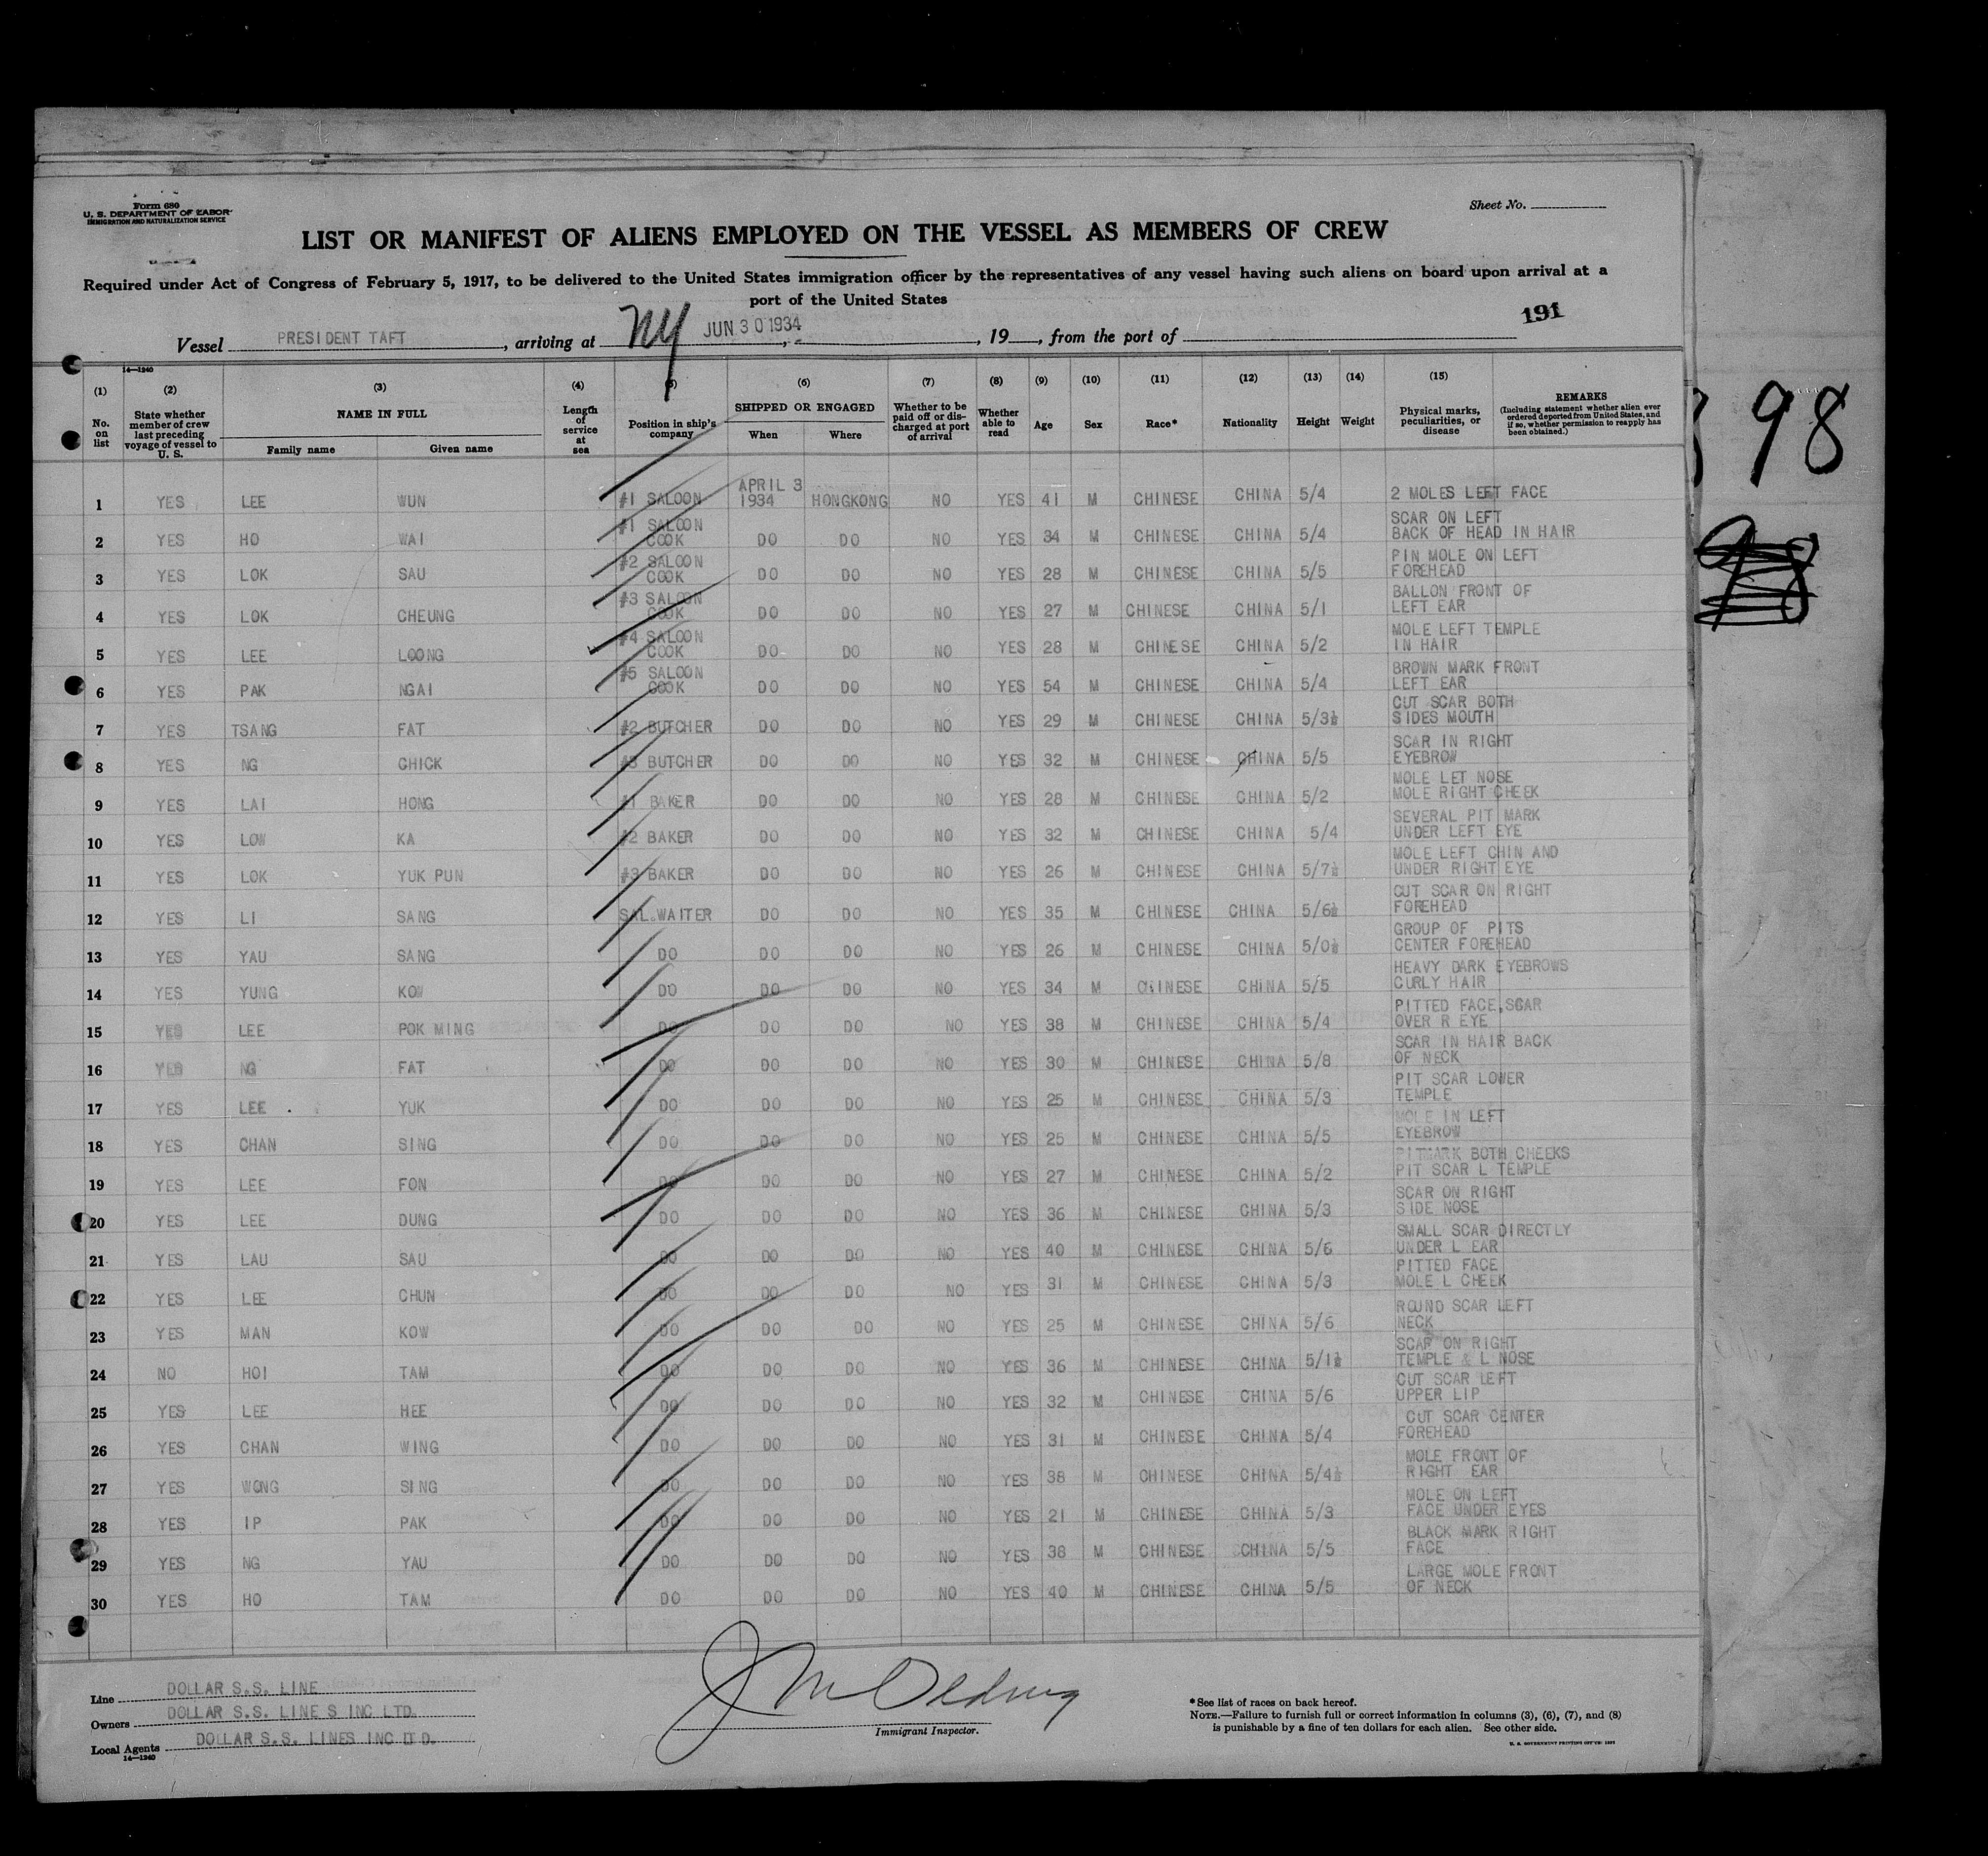 Form 680
U. S. DEPARTMENT OF LABOR
IMMIGRATION AND NATURALIZATION SERVICE
Sheet No.
LIST OR MANIFEST OF ALIENS EMPLOYED ON THE VESSEL AS MEMBERS OF CREW
Required under Act of Congress of February 5, 1917, to be delivered to the United States immigration officer by the representatives of any vessel having such aliens on board upon arrival at a
port of the United States
191
Vessel PRESIDENT TAFT, arriving at NY JUN 30 1934, 19, from the port of
14—1240
(1) (2) (3) (4) (5) (6) (7) (8) (9) (10) (11) (12) (13) (14) (15)
No. on list
State whether member of crew last preceding voyage of vessel to U. S.
NAME IN FULL
Family name Given name
Length of service at sea
Position in ship's company
SHIPPED OR ENGAGED
When Where
Whether to be paid off or discharged at port of arrival
Whether able to read
Age
Sex
Race*
Nationality
Height
Weight
Physical marks, peculiarities, or disease
REMARKS
(Including statement whether alien ever ordered deported from United States, and if so, whether permission to reapply has been obtained.)
98
1 YES LEE WUN #1 SALOON APRIL 3 1934 HONGKONG NO YES 41 M CHINESE CHINA 5/4 2 MOLES LEFT FACE
2 YES HO WAI #1 SALOON COOK DO DO NO YES 34 M CHINESE CHINA 5/4 SCAR ON LEFT BACK OF HEAD IN HAIR
3 YES LOK SAU #2 SALOON COOK DO DO NO YES 28 M CHINESE CHINA 5/5 PIN MOLE ON LEFT FOREHEAD
4 YES LOK CHEUNG #3 SALOON COOK DO DO NO YES 27 M CHINESE CHINA 5/1 BALLON FRONT OF LEFT EAR
5 YES LEE LOONG #4 SALOON COOK DO DO NO YES 28 M CHINESE CHINA 5/2 MOLE LEFT TEMPLE IN HAIR
6 YES PAK NGAI #5 SALOON COOK DO DO NO YES 54 M CHINESE CHINA 5/4 BROWN MARK FRONT LEFT EAR
7 YES TSANG FAT #2 BUTCHER DO DO NO YES 29 M CHINESE CHINA 5/3½ CUT SCAR BOTH SIDES MOUTH
8 YES NG CHICK #3 BUTCHER DO DO NO YES 32 M CHINESE CHINA 5/5 SCAR IN RIGHT EYEBROW
9 YES LAI HONG #1 BAKER DO DO NO YES 28 M CHINESE CHINA 5/2 MOLE LET NOSE MOLE RIGHT CHEEK
10 YES LOW KA #2 BAKER DO DO NO YES 32 M CHINESE CHINA 5/4 SEVERAL PIT MARK UNDER LEFT EYE
11 YES LOK YUK PUN #3 BAKER DO DO NO YES 26 M CHINESE CHINA 5/7½ MOLE LEFT CHIN AND UNDER RIGHT EYE
12 YES LI SANG SAL.WAITER DO DO NO YES 35 M CHINESE CHINA 5/6½ CUT SCAR ON RIGHT FOREHEAD
13 YES YAU SANG DO DO DO NO YES 26 M CHINESE CHINA 5/0½ GROUP OF PITS CENTER FOREHEAD
14 YES YUNG KOW DO DO DO NO YES 34 M CHINESE CHINA 5/5 HEAVY DARK EYEBROWS CURLY HAIR
15 YES LEE POK MING DO DO DO NO YES 38 M CHINESE CHINA 5/4 PITTED FACE,SCAR OVER R EYE
16 YES NG FAT DO DO DO NO YES 30 M CHINESE CHINA 5/8 SCAR IN HAIR BACK OF NECK
17 YES LEE YUK DO DO DO NO YES 25 M CHINESE CHINA 5/3 PIT SCAR LOWER TEMPLE
18 YES CHAN SING DO DO DO NO YES 25 M CHINESE CHINA 5/5 MOLE IN LEFT EYEBROW
19 YES LEE FON DO DO DO NO YES 27 M CHINESE CHINA 5/2 PITMARK BOTH CHEEKS PIT SCAR L TEMPLE
20 YES LEE DUNG DO DO DO NO YES 36 M CHINESE CHINA 5/3 SCAR ON RIGHT SIDE NOSE
21 YES LAU SAU DO DO DO NO YES 40 M CHINESE CHINA 5/6 SMALL SCAR DIRECTLY UNDER L EAR
22 YES LEE CHUN DO DO DO NO YES 31 M CHINESE CHINA 5/3 PITTED FACE MOLE L CHEEK
23 YES MAN KOW DO DO DO NO YES 25 M CHINESE CHINA 5/6 ROUND SCAR LEFT NECK
24 NO HOI TAM DO DO DO NO YES 36 M CHINESE CHINA 5/1½ SCAR ON RIGHT TEMPLE & L NOSE
25 YES LEE HEE DO DO DO NO YES 32 M CHINESE CHINA 5/6 CUT SCAR LEFT UPPER LIP
26 YES CHAN WING DO DO DO NO YES 31 M CHINESE CHINA 5/4 CUT SCAR CENTER FOREHEAD
27 YES WONG SING DO DO DO NO YES 38 M CHINESE CHINA 5/4½ MOLE FRONT OF RIGHT EAR
28 YES IP PAK DO DO DO NO YES 21 M CHINESE CHINA 5/3 MOLE ON LEFT FACE UNDER EYES
29 YES NG YAU DO DO DO NO YES 38 M CHINESE CHINA 5/5 BLACK MARK RIGHT FACE
30 YES HO TAM DO DO DO NO YES 40 M CHINESE CHINA 5/5 LARGE MOLE FRONT OF NECK
Line DOLLAR S.S. LINE
Owners DOLLAR S.S. LINE S INC LTD.
Local Agents DOLLAR S.S. LINES INC LTD.
14—1240
Immigrant Inspector.
*See list of races on back hereof.
NOTE.—Failure to furnish full or correct information in columns (3), (6), (7), and (8)
is punishable by a fine of ten dollars for each alien. See other side.